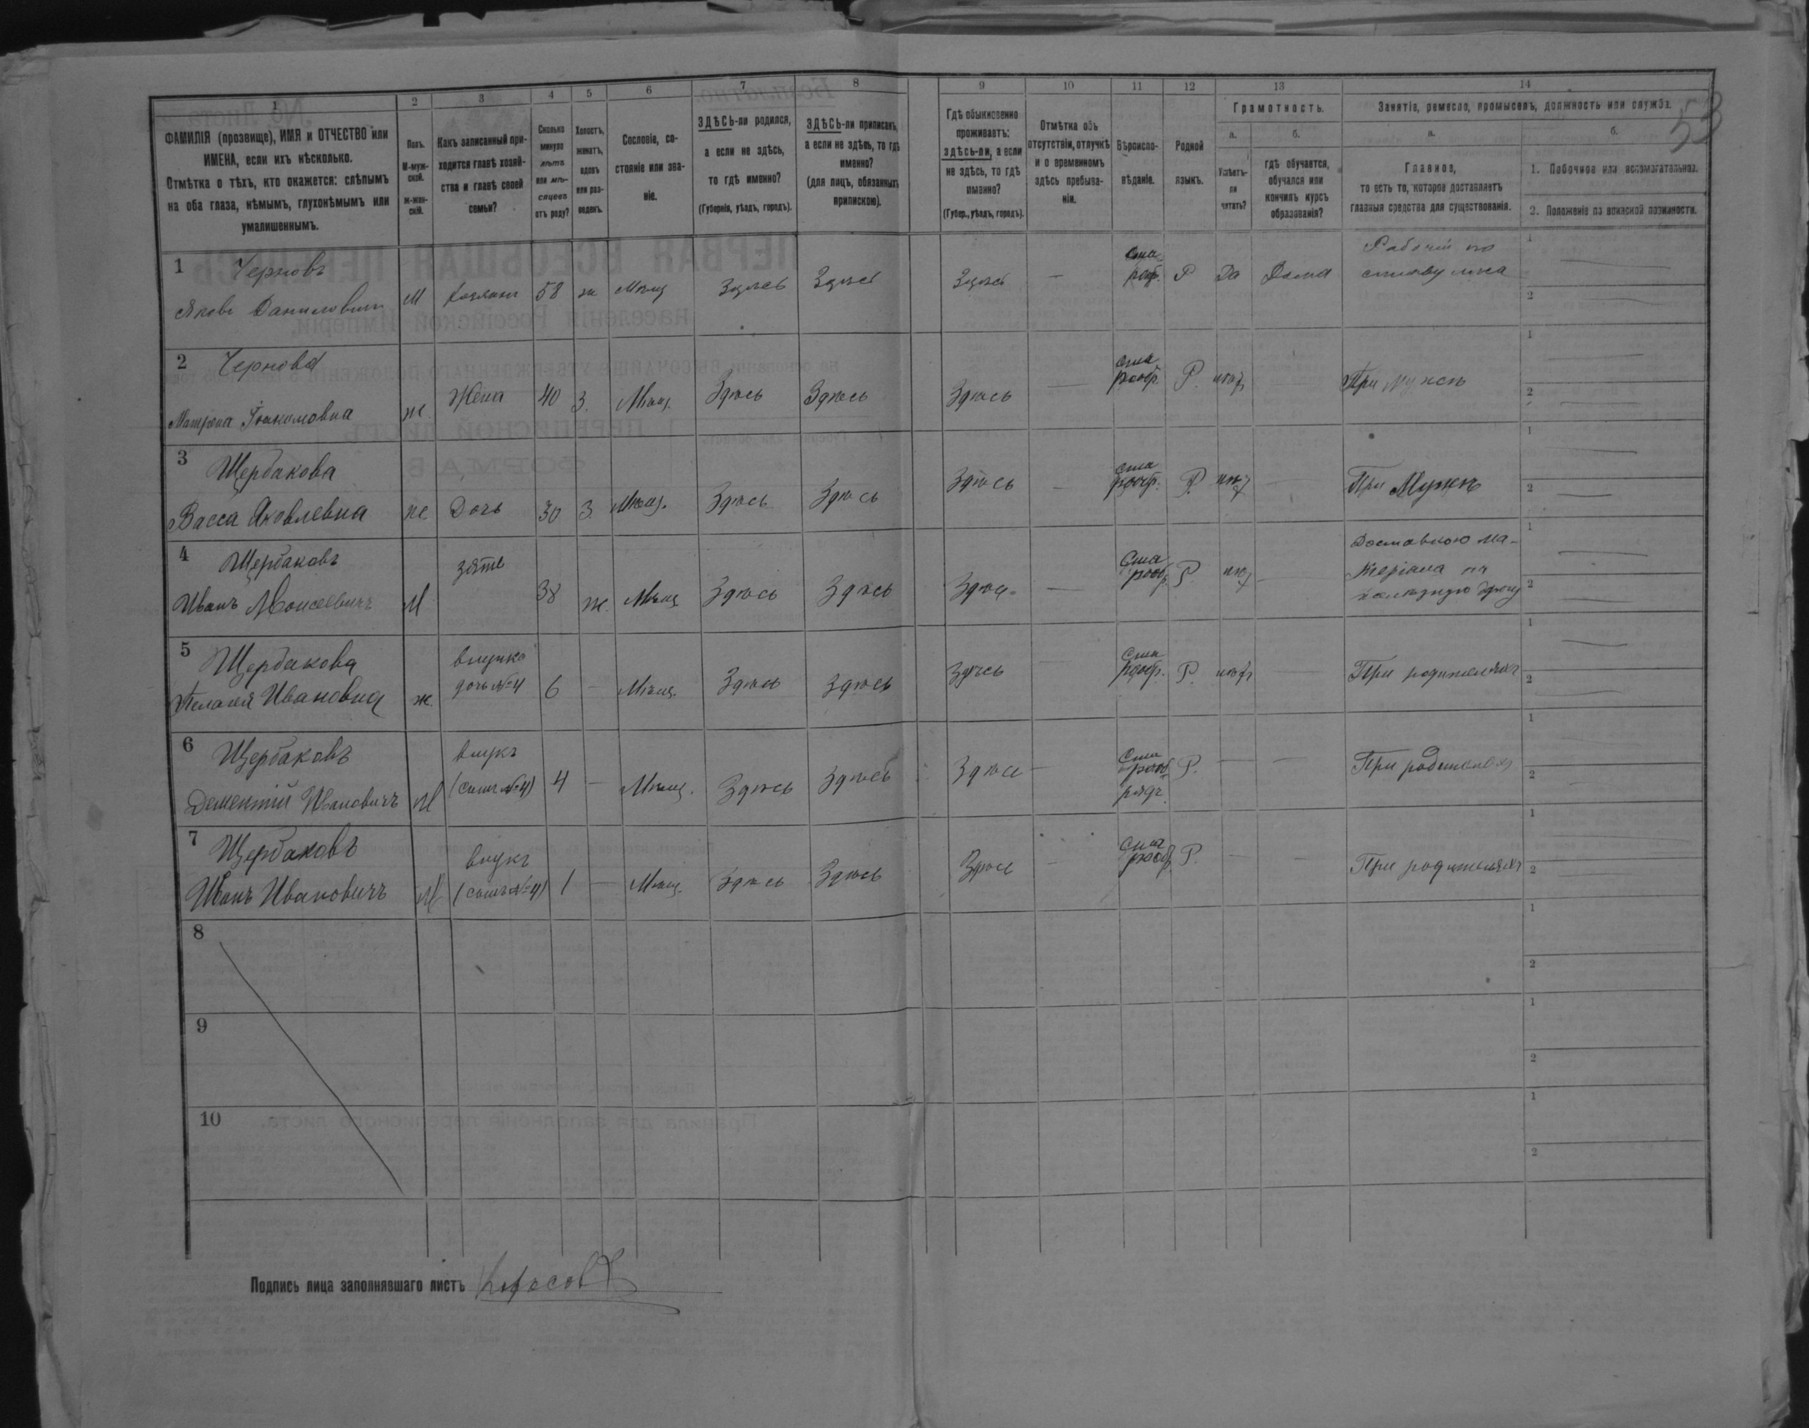 53
1 2 3 4 5 6 7 8 9 10 11 12 13 14
ФАМИЛІЯ (прозвище), ИМЯ и ОТЧЕСТВО или
ИМЕНА, если ихъ нѣсколько.
Отмѣтка о тѣхъ, кто окажется: слѣпымъ
на оба глаза, нѣмымъ, глухонѣмымъ или
умалишеннымъ.
Полъ.
М-муж-
ской.
Ж-жен-
скій.
Какъ записанный при-
ходится главѣ хозяй-
ства и главѣ своей
семьи?
Сколько
минуло
лѣтъ
или мѣ-
сяцевъ
отъ роду?
Холостъ,
женатъ,
вдовъ
или раз-
веденъ.
Сословіе, со-
стояніе или зва-
ніе.
ЗДѢСЬ-ли родился,
а если не здѣсь,
то гдѣ именно?
(Губернія, уѣздъ, городъ).
ЗДѢСЬ-ли приписанъ,
а если не здѣсь, то гдѣ
именно?
(для лицъ, обязанныхъ
припискою).
Гдѣ обыкновенно
проживаетъ:
здѣсь-ли, а если
не здѣсь, то гдѣ
именно?
(Губер., уѣздъ, городъ).
Отмѣтка объ
отсутствіи, отлучкѣ
и о временномъ
здѣсь пребыва-
ніи.
Вѣроиспо-
вѣданіе.
Родной
языкъ.
Грамотность.
а.
Умѣетъ-
ли
читать?
б.
гдѣ обучается,
обучался или
кончилъ курсъ
образованія?
Занятіе, ремесло, промыселъ, должность или служба.
а.
Главное,
то есть то, которое доставляетъ
главныя средства для существованія.
б.
1. Побочное или вспомогательное.
2. Положеніе по воинской повинности.
1 Черновъ
Яковъ Даниловичъ М Хозяинъ 58 ж Мѣщ Здѣсь Здѣсь Здѣсь — Р Да Дома Рабочій по
сплаву лѣса
2 Чернова
Матрена ж Жена 40 З. Мѣщ. Здѣсь Здѣсь Здѣсь — Р. При мужѣ
3 Щербакова
Васса Яковлевна ж Дочь 30 З Мѣщ. Здѣсь Здѣсь Здѣсь — Р. При Мужѣ
4 Щербаковъ
Иванъ Моисеевичъ М зять 38 ж. Мѣщ Здѣсь Здѣсь Здѣсь — Р Доставкою ма-
теріала на
5 Щербакова
Пелагея Ивановна ж. внучка
дочь №4 6 — Мѣщ. Здѣсь Здѣсь здѣсь — Р. При родителяхъ
6 Щербаковъ
Дементій Ивановичъ М внукъ
(сынъ №4) 4 — Мѣщ. Здѣсь Здѣсь Здѣсь — Р. — — При родителяхъ
7 Щербаковъ
Иванъ Ивановичъ М внукъ
(сынъ №4) 1 — Мѣщ. Здѣсь Здѣсь Здѣсь — Р. — — При родителяхъ
8
9
10
Подпись лица заполнявшаго листъ